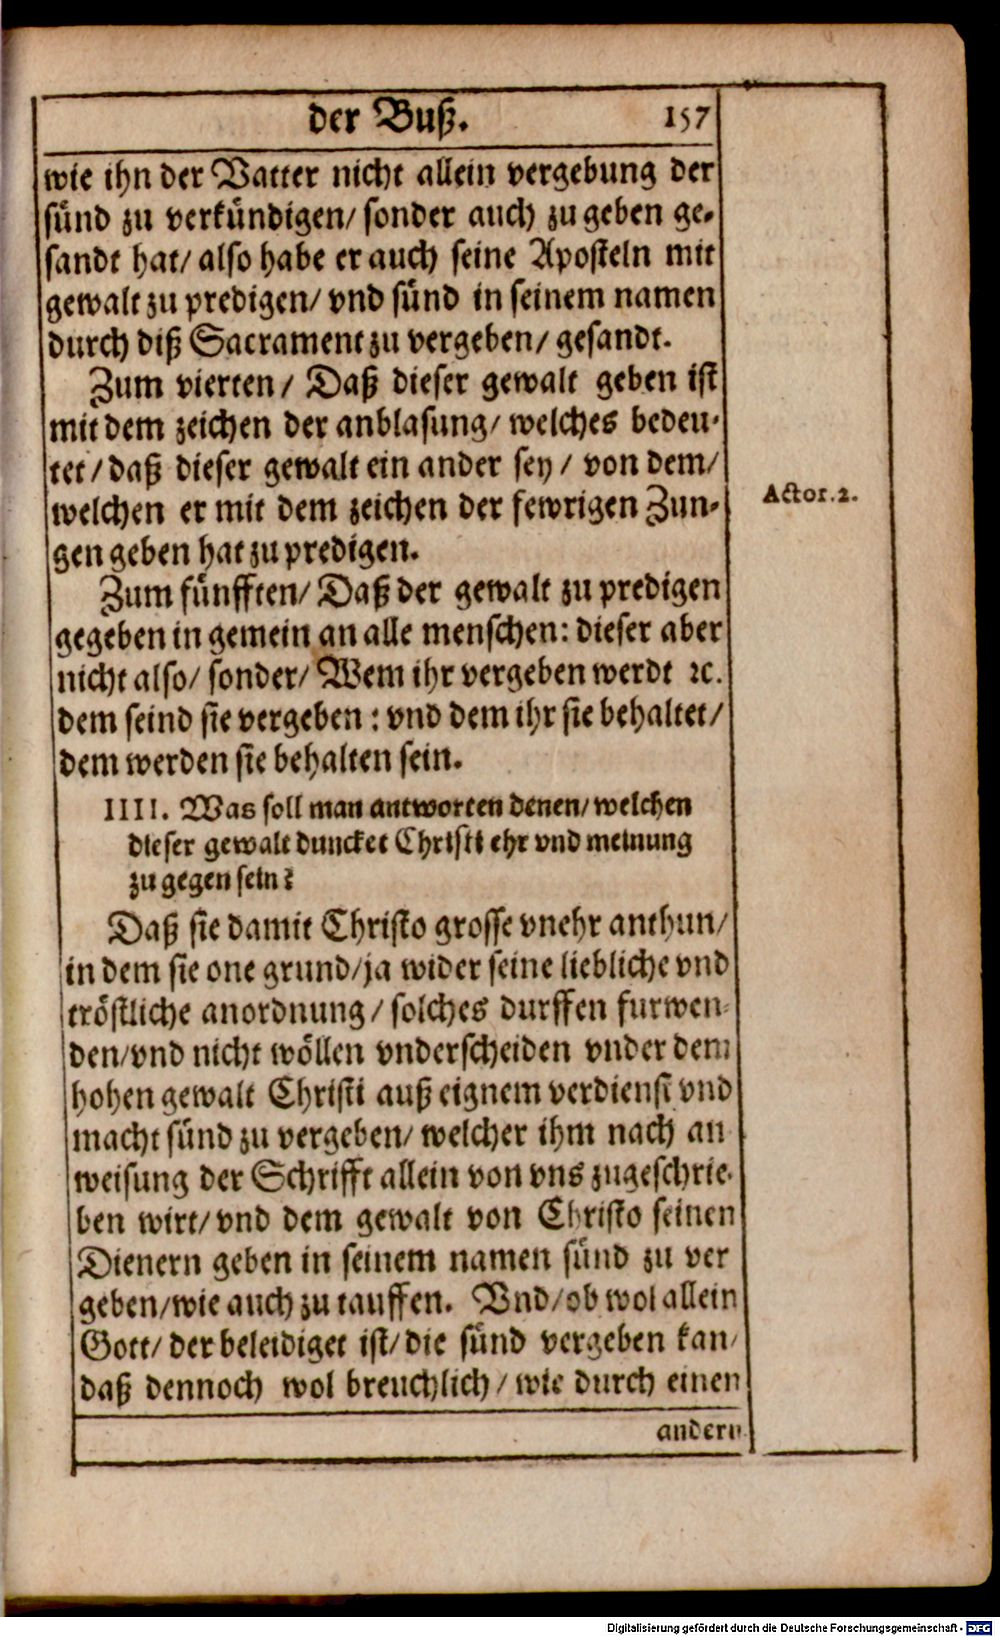 der Buß. 157
wie ihn der Vatter nicht allein vergebung der
sünd zu verkündigen/ sonder auch zu geben ge-
sandt hat/ also habe er auch seine Aposteln mit
gewalt zu predigen/ vnd sünd in seinem namen
durch diß Sacrament zu vergeben/ gesandt.
Zum vierten/ Daß dieser gewalt geben ist
mit dem zeichen der anblasung/ welches bedeu-
tet/ daß dieser gewalt ein ander sey/ von dem/
welchen er mit dem zeichen der fewrigen Zun-
gen geben hat zu predigen.
Actor. 2.
Zum fünfften/ Daß der gewalt zu predigen
gegeben in gemein an alle menschen: dieser aber
nicht also/ sonder/ Wem ihr vergeben werdt ꝛc.
dem seind sie vergeben: vnd dem ihr sie behaltet/
dem werden sie behalten sein.
IIII. Was soll man antworten denen/ welchen
dieser gewalt duncket Christi ehr vnd meinung
zu gegen sein?
Daß sie damit Christo grosse vnehr anthun/
in dem sie one grund/ ja wider seine liebliche vnd
tröstliche anordnung/ solches durffen furwen-
den/ vnd nicht wöllen vnderscheiden vnder dem
hohen gewalt Christi auß eignem verdienst vnd
macht sünd zu vergeben/ welcher ihm nach an
weisung der Schrifft allein von vns zugeschrie-
ben wirt/ vnd dem gewalt von Christo seinen
Dienern geben in seinem namen sünd zu ver
geben/ wie auch zu tauffen. Vnd/ ob wol allein
Gott/ der beleidiget ist/ die sünd vergeben kan/
daß dennoch wol breuchlich/ wie durch einen
andern
Digitalisierung gefördert durch die Deutsche Forschungsgemeinschaft - DFG